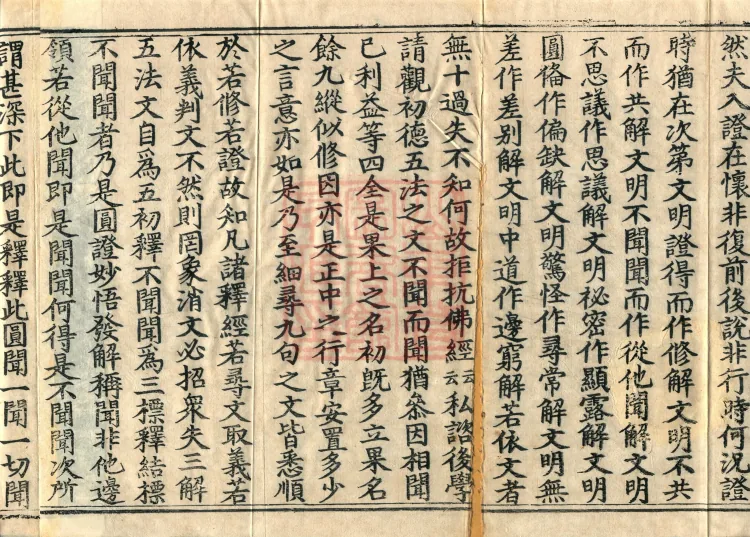 然夫入證在懷非復前後說非行時何況證
時猶在次第文明證得而作修解文明不共
而作共解文明不聞聞而作從他聞解文明
不思議作思議解文明祕密作顯露解文明
圓備作偏缺解文明驚怪作尋常解文明無
差作差別解文明中道作邊窮解若依文者
無十過失不知何故拒抗佛經云云私諮後學
請觀初德五法之文不聞而聞猶叅因相聞
已利益等四全是果上之名初旣多立果名
餘九縱似修因亦是正中之行章安置多少
之言意亦如是乃至細尋九句之文皆悉順
於若修若證故知凡諸釋經若尋文取義若
依義判文不然則罔象消文必招衆失三解
五法文自爲五初釋不聞聞為三標釋結標
不聞聞者乃是圓證妙悟發解稱聞非他邊
領若從他聞即是聞聞何得是不聞聞次所
謂甚深下此即是釋釋此圓聞一聞一切聞